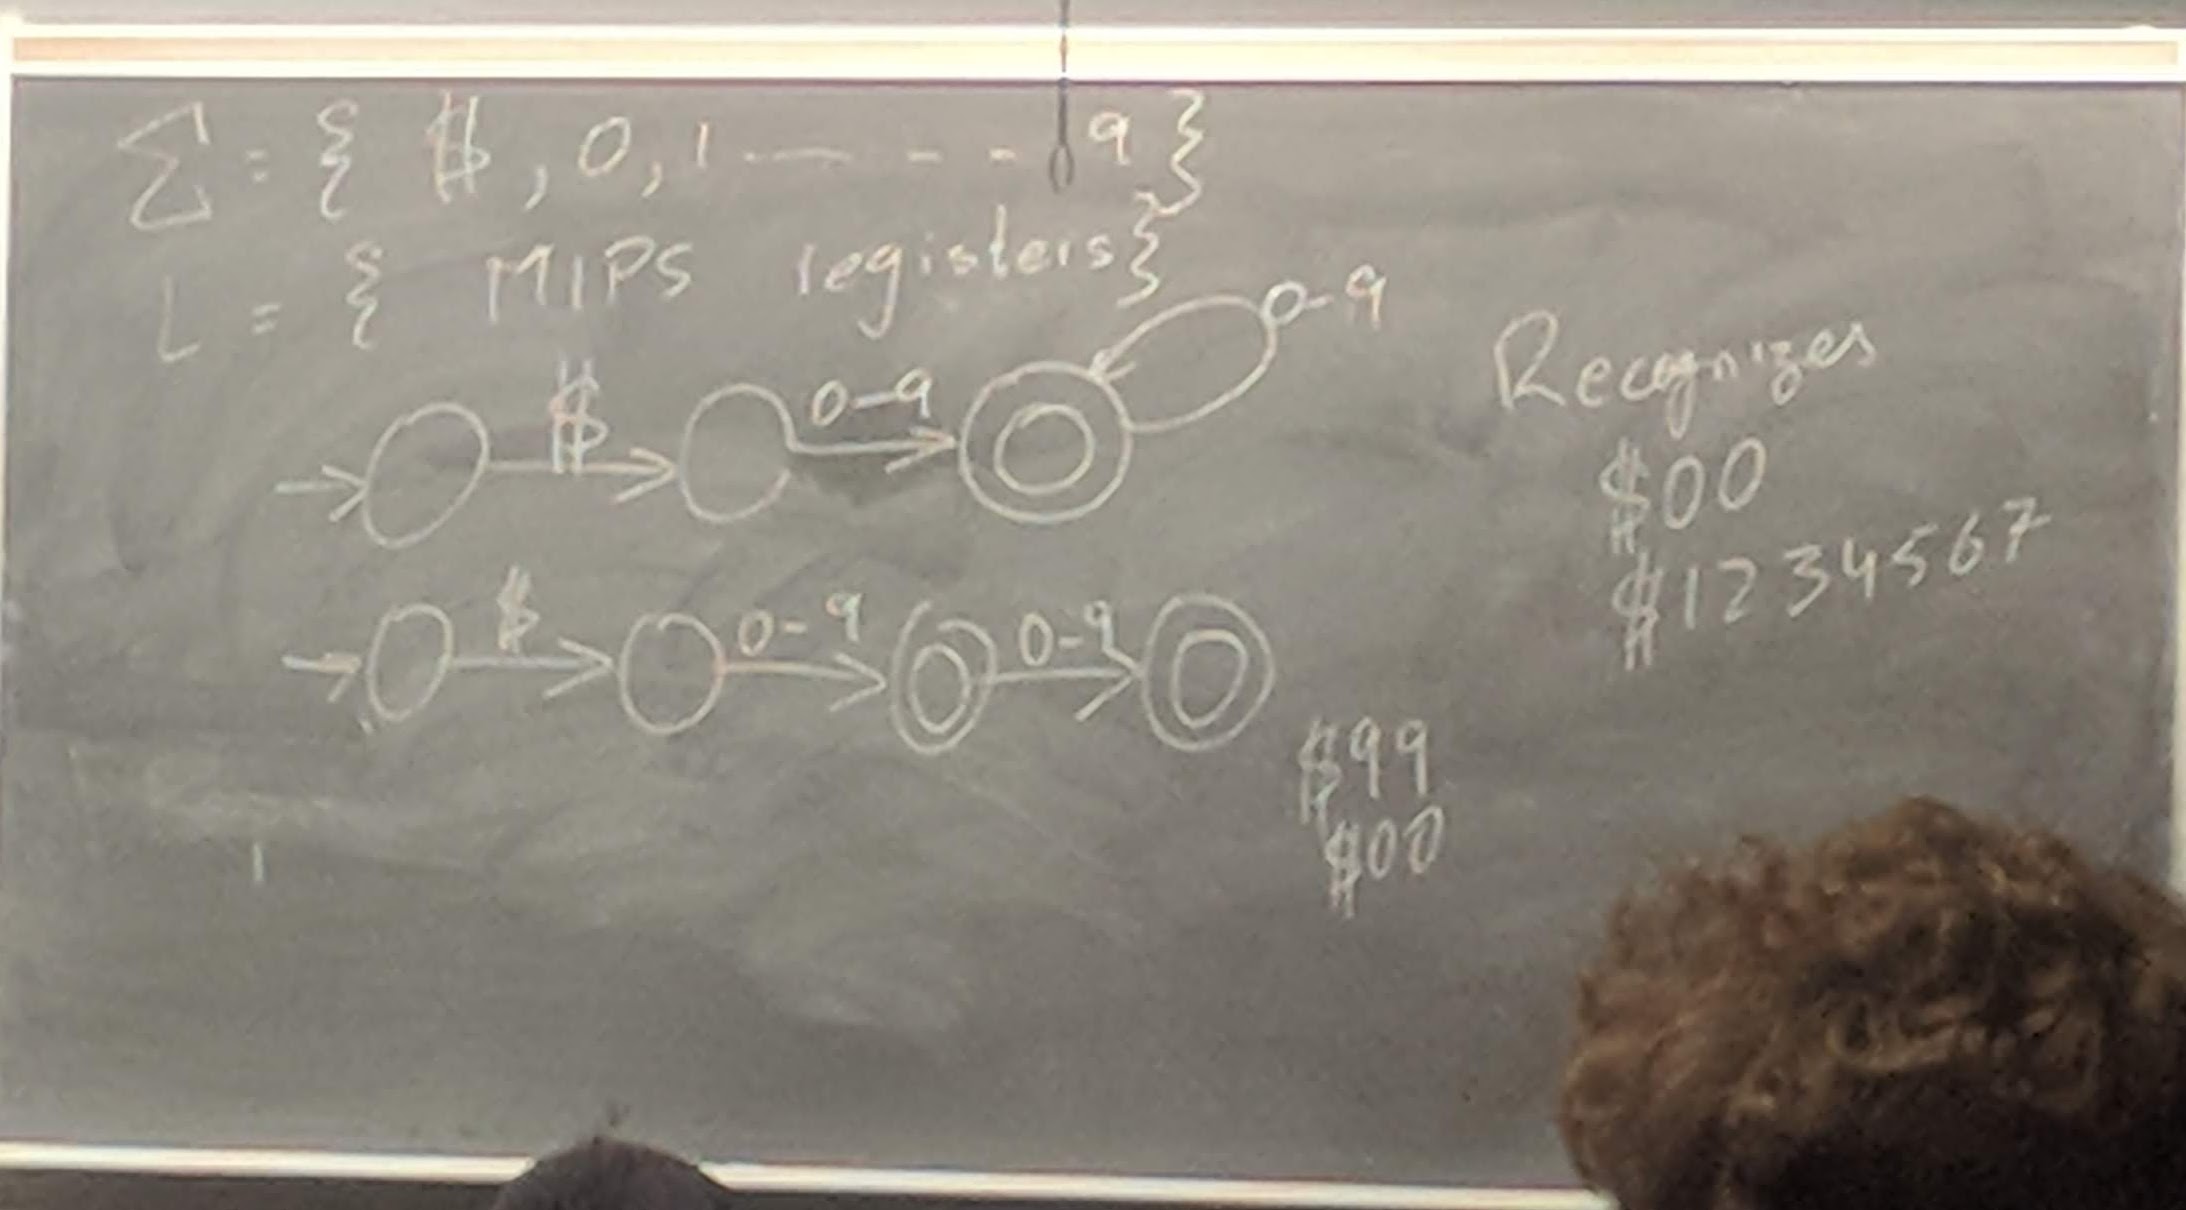 Σ = { $, 0, 1 — - - - 9 }
L = { MIPS registers }
$ 0-9 0-9
Recognizes
$00
$1234567
$ 0-9 0-9
$99
$00